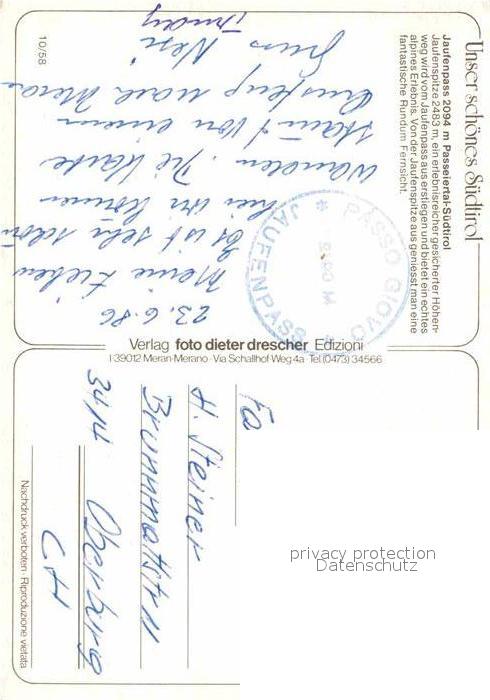 Unser schönes Südtirol
Jaufenpass 2094 m Passeiertal-Südtirol
Jaufenspitze 2483 m, ein erlebnisreicher gesicherter Höhen-
weg wird vom Jaufenpass aus erstiegen und bietet ein echtes
alpines Erlebnis. Von der Jaufenspitze aus geniesst man eine
fantastische Rundum Fernsicht.
PASSO GIOVO
2090 M
JAUFENPASS
23.6.86
Meine Lieben
Es ist sehr schön
hier wir können
wandern. Die Karte
stammt von einem
Ausflug nach Meran
Gruss Nesi
Trudy
10/58
Verlag foto dieter drescher Edizioni
I-39012 Meran-Merano · Via Schallhof-Weg 4a · Tel. (0473) 34566
Fa
H. Steiner
Brunnmattstr 11
3414 Oberburg
CH
Nachdruck verboten · Riproduzione vietata
privacy protection
Datenschutz